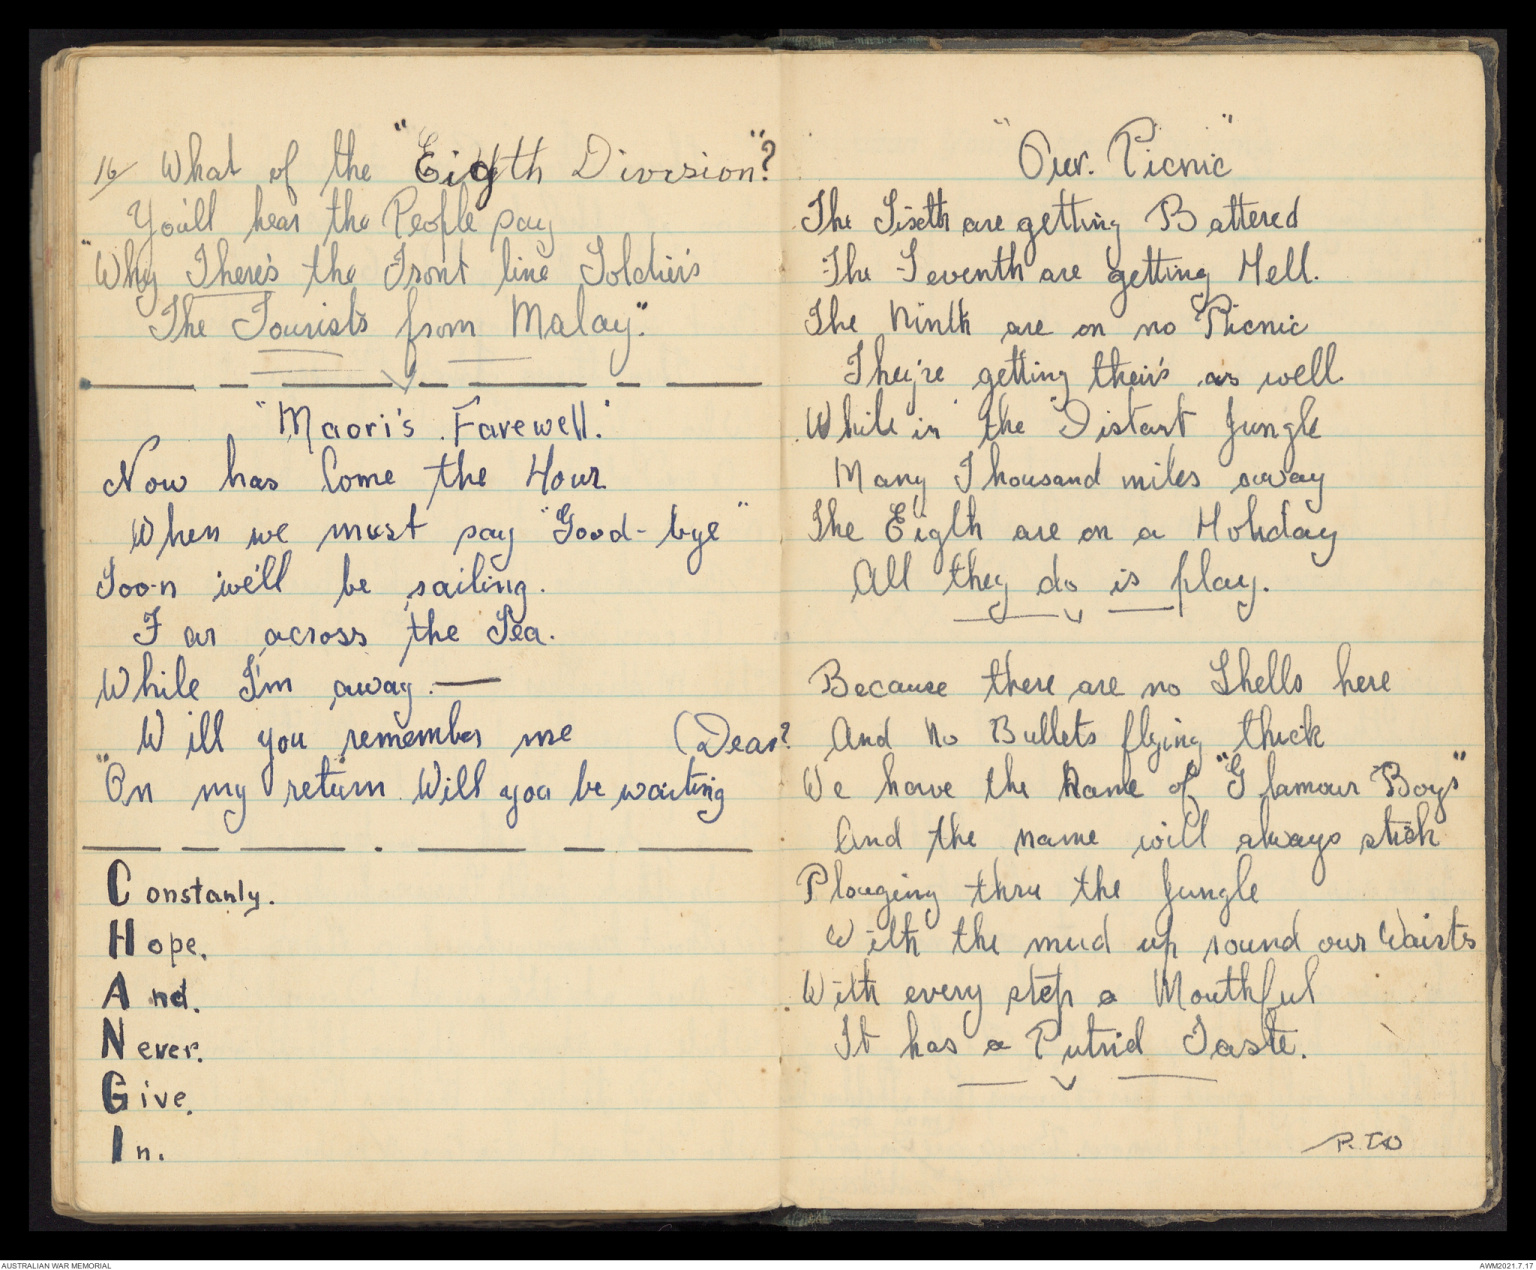 16/ What of the "Eigth Division"?
You'll hear the People say
"Why There's the Front line Soldier's
The Tourists from Malay."
"Maori's Farewell."
Now has Come the Hour
When we must say "Good-bye"
Soon we'll be sailing.
Far across the Sea.
While I'm away. —
Will you remember me (Dear?
"On my return Will you be waiting
Constanly.
Hope.
And.
Never.
Give.
In.
"Our. Picnic"
The Sixth are getting Battered
The Seventh are getting Hell.
The Ninth are on no Picnic
They're getting their's as well.
While in the Distant Jungle
Many Thousand miles away
The Eigth are on a Holiday
All they do is play.
Because there are no Shells here
And No Bullets flying thick
We have the Name of "Glamour Boys"
And the name will always stick
Plouging thru the Jungle
With the mud up round our Waists
With every step a Mouthful
It has a Putrid Taste.
P.T.O
AUSTRALIAN WAR MEMORIAL
AWM2021.7.17